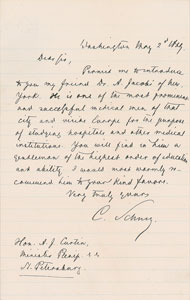 Washington May 2d 1869
Dear Sir,
Permit me to introduce
to you my friend Dr. A. Jacobi of New
York. He is one of the most prominent
and successful medical men of that
city and visits Europe for the purpose
of studying hospitals and other medical
institutions. You will find in him a
gentleman of the highest order of education
and ability. I would most warmly re-
commend him to your kind favors.
Very truly yours
C. Schurz
Hon. A. J. Curtin,
Minister Plenip.
St. Petersburg